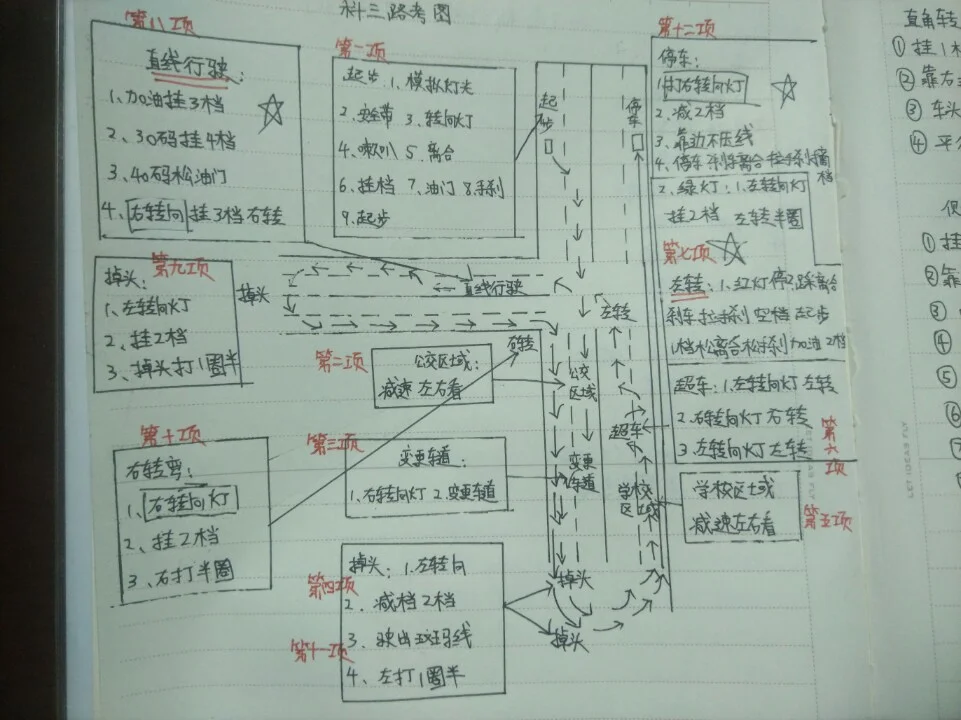 科三路考图
第八项
直线行驶:
1、加油挂3档
2、30码挂4档
3、40码松油门
4、右转向挂3档右转
第一项
起步、1、模拟灯光
2、安全带 3、转向灯
4、喇叭 5、离合
6、挂档 7、油门 8、手刹
9、起步
起步
停车
第十二项
停车:
1、打右转向灯
2、减2档
3、靠边不压线
4、停车 刹车离合拉手刹摘档
2、绿灯:1、左转向灯
挂2档 左转半圈
第七项
左转:1、红灯停踩离合
刹车拉手刹 空档 起步
1档松离合松手刹加油2档
第九项
掉头:
1、左转向灯
2、挂2档
3、掉头打1圈半
掉头
直线行驶
左转
右转
第二项
公交区域:
减速左右看
公交区域
超车:1、左转向灯左转
2、右转向灯右转
3、左转向灯左转
第六项
超车
第十项
右转弯:
1、右转向灯
2、挂2档
3、右打半圈
第三项
变更车道:
1、右转向灯 2、变更车道
变更车道
学校区域
学校区域
减速左右看
第五项
第四项
第十一项
掉头:1、左转向
2、减档2档
3、驶出斑马线
4、左打1圈半
掉头
掉头
直角转
① 挂1
② 靠右
③ 车头
④
① 挂
② 靠
③
④
⑤
⑥